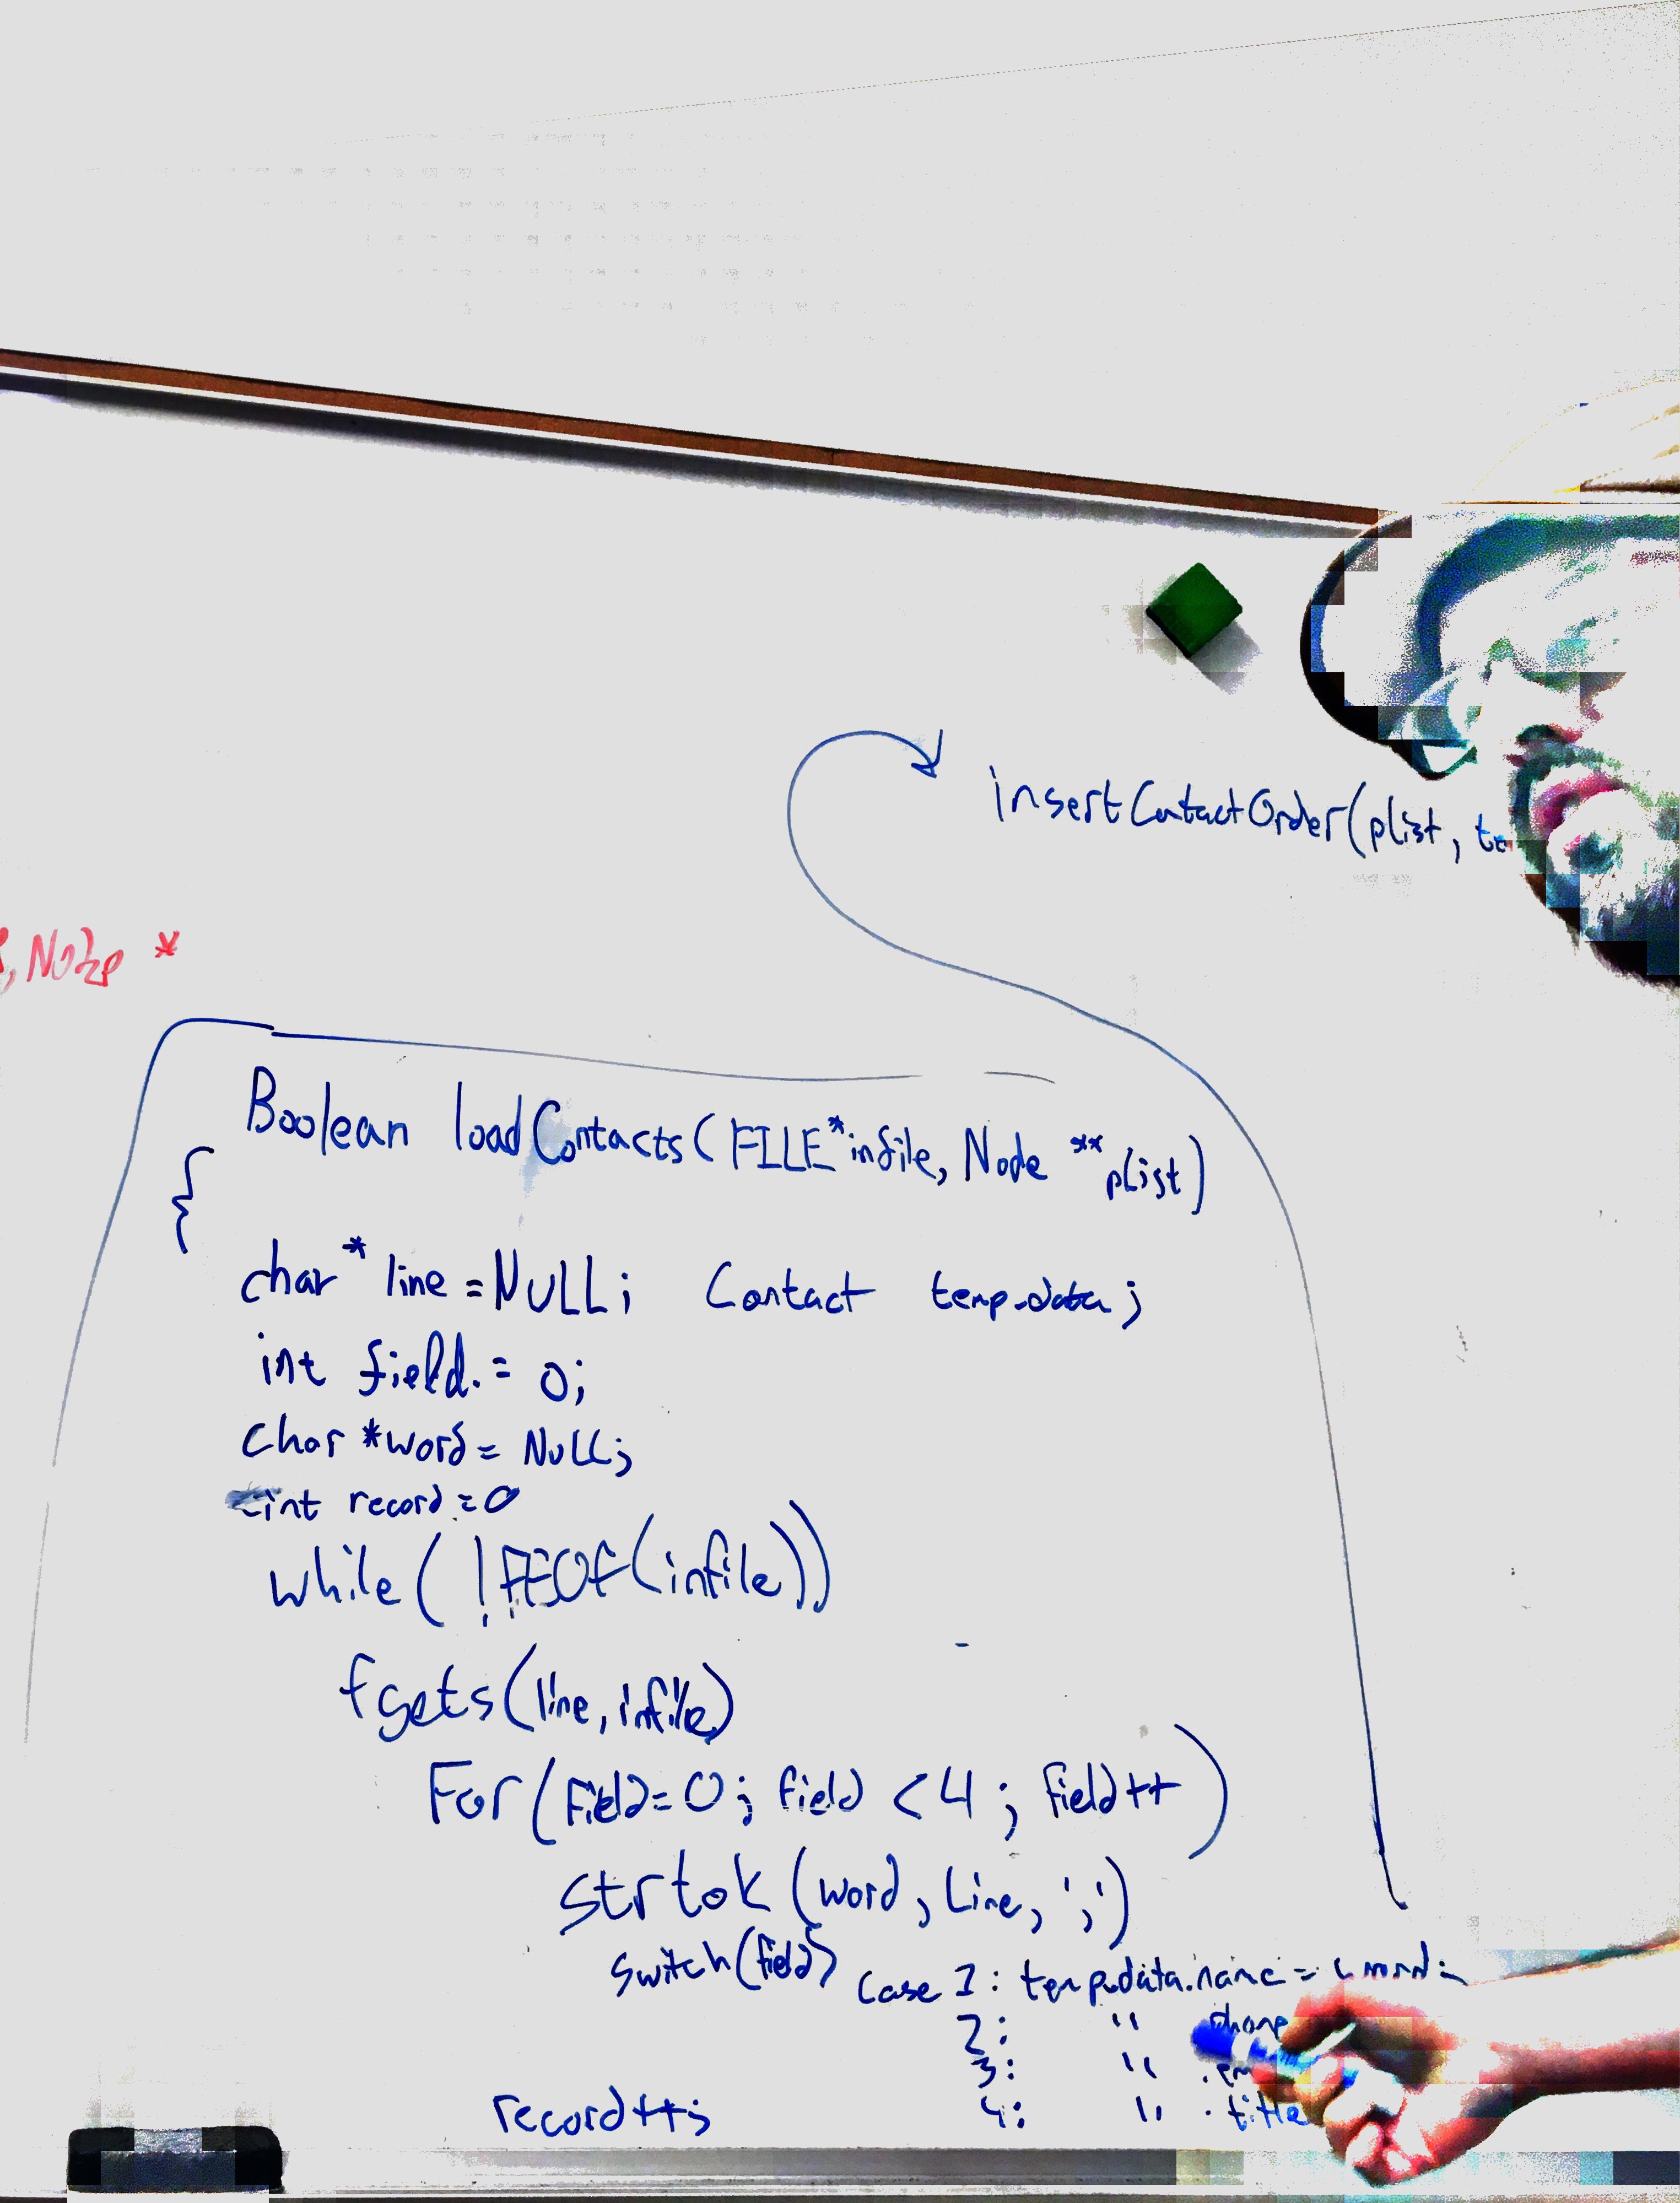 insertContactOrder(plist, te
, Node *
Boolean loadContacts(FILE *infile, Node **pList)
{
char * line = NULL; Contact temp.data;
int field. = 0;
char *word = NULL;
int record = 0
while( !FEOF(infile))
fgets(line, infile)
For(field=0; field < 4; field++)
strtok(word, Line, ';')
switch(field) case 1: temp.data.name = word;
2: " phone
3: " .em
4: " . title
record++;